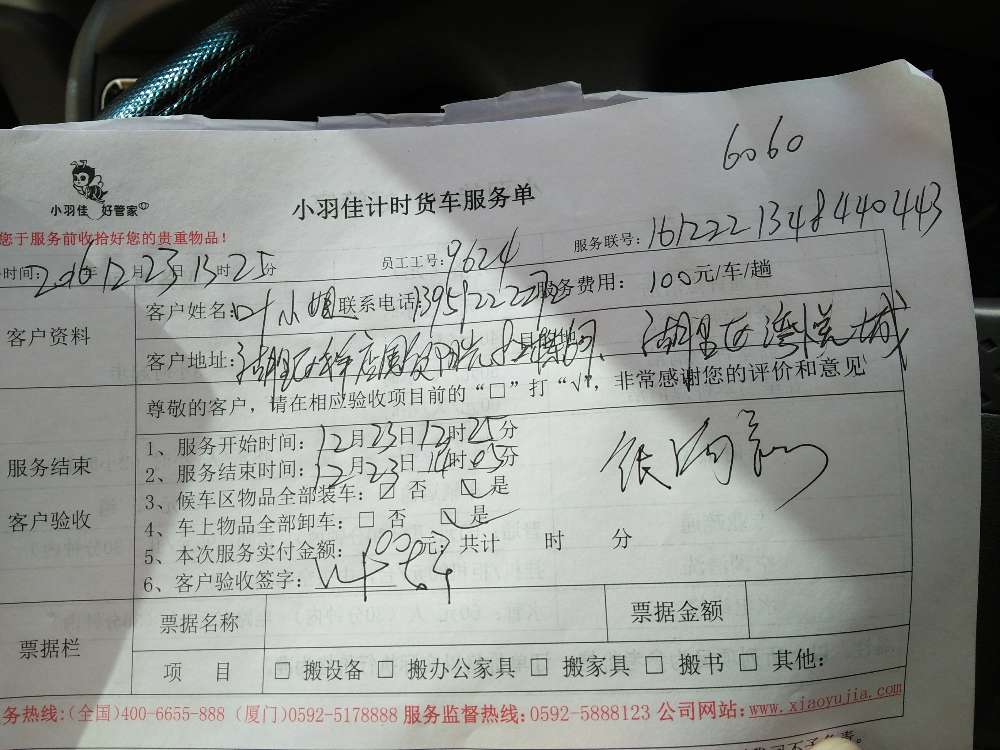 6060
小羽佳 好管家
小羽佳计时货车服务单
您于服务前收拾好您的贵重物品!
服务联号: 1612221348440443
时间: 2016年12月23日13时25分 员工工号: 9624
客户资料
客户姓名: 叶小姐 联系电话: 服务费用: 100元/车/趟
客户地址: 湖里区
尊敬的客户,请在相应验收项目前的“□”打“√”,非常感谢您的评价和意见
服务结束
客户验收
1、服务开始时间: 12月23日12时25分
2、服务结束时间: 12月23日14时05分
3、候车区物品全部装车: □ 否 ☑ 是
4、车上物品全部卸车: □ 否 ☑ 是
5、本次服务实付金额: 100元; 共计 时 分
6、客户验收签字:
票据栏
票据名称 票据金额
项 目 □ 搬设备 □ 搬办公家具 □ 搬家具 □ 搬书 □ 其他:
务热线:(全国)400-6655-888 (厦门)0592-5178888 服务监督热线:0592-5888123 公司网站:www.xiaoyujia.com